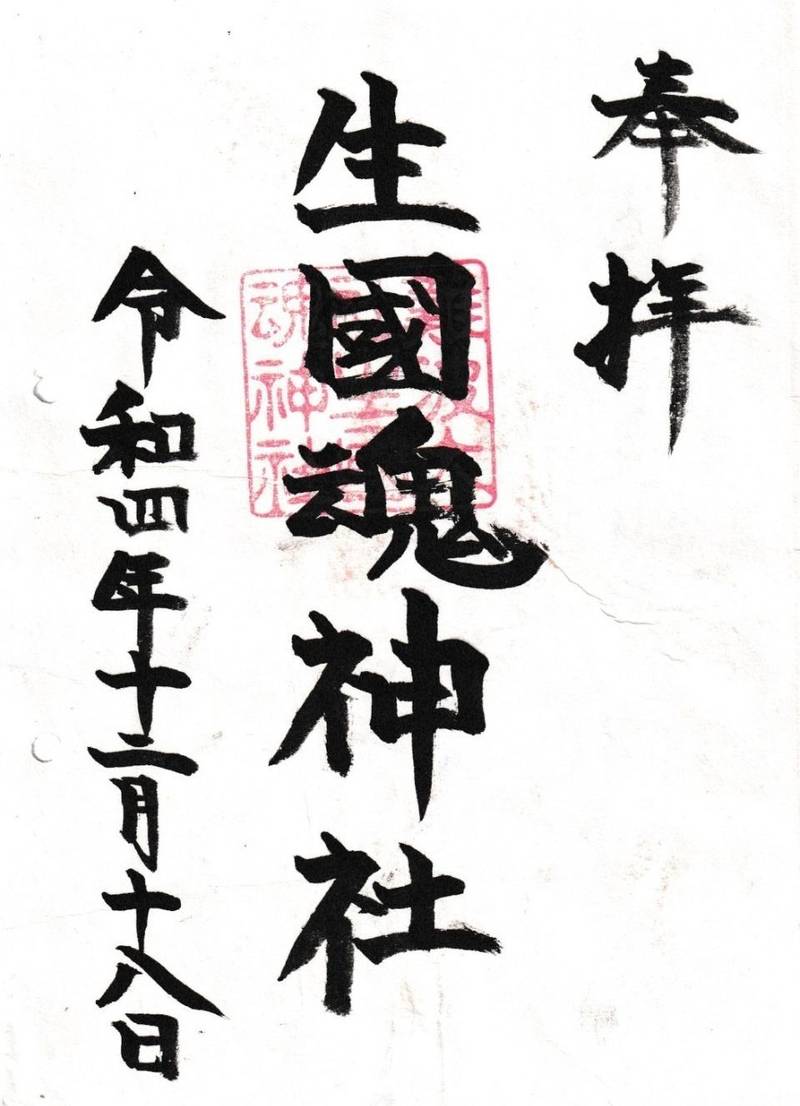 奉拝
生國魂神社
令和四年十二月十八日
魂神社